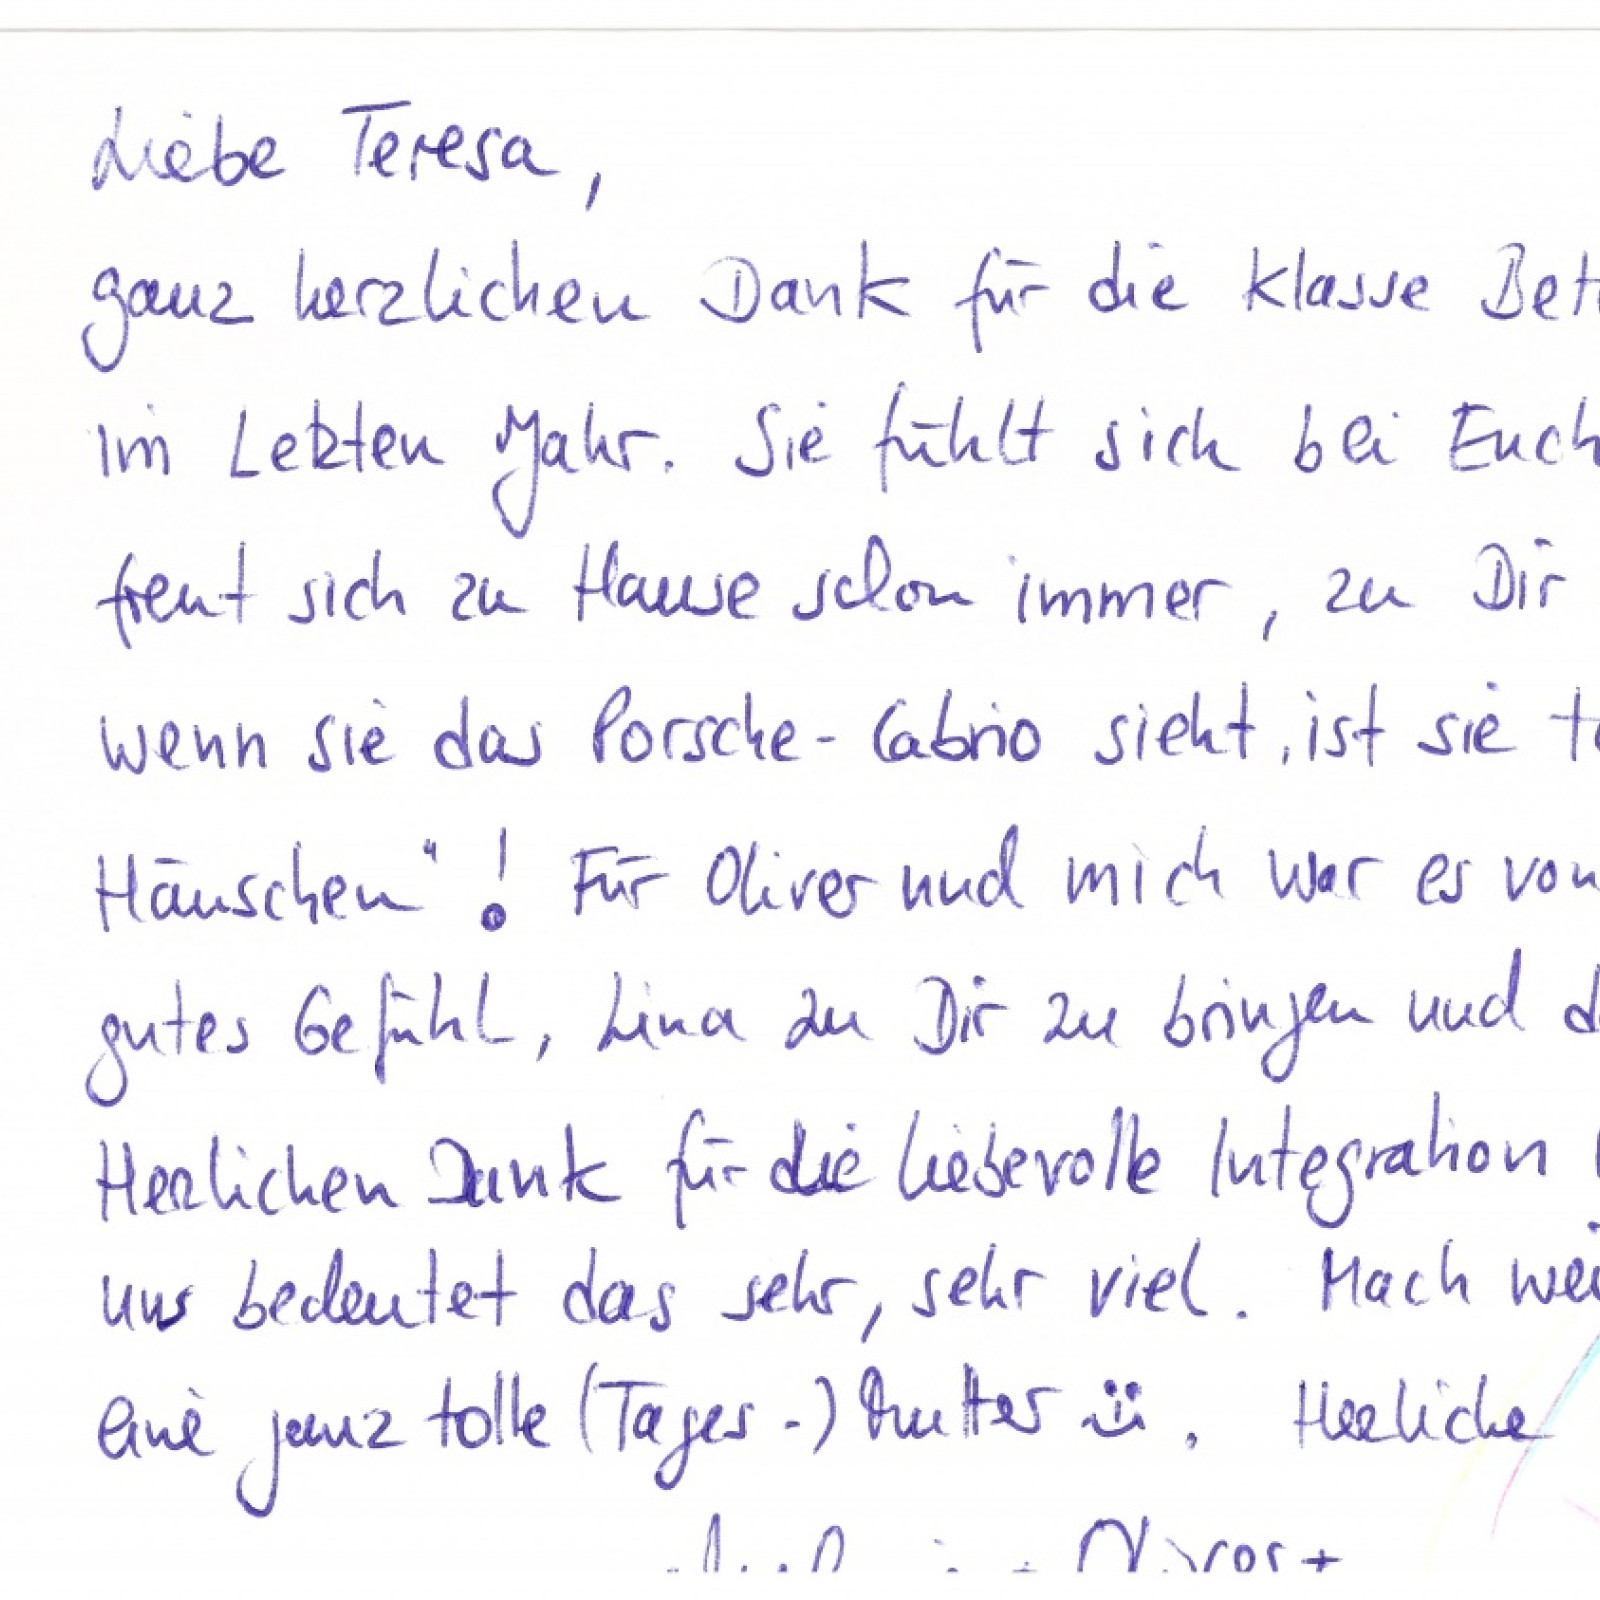 Liebe Teresa,
ganz herzlichen Dank für die klasse Bet
im Letzten Jahr. Sie fühlt sich bei Euch
freut sich zu Hause schon immer, zu Dir
wenn sie das Porsche-Cabrio sieht, ist sie t
Häuschen"! Für Oliver und mich war es von
gutes Gefühl, Lina zu Dir zu bringen und d
Herzlichen Dank für die liebevolle Integration
uns bedeutet das sehr, sehr viel. Mach wei
eine ganz tolle (Tages-) Mutter. Herzliche